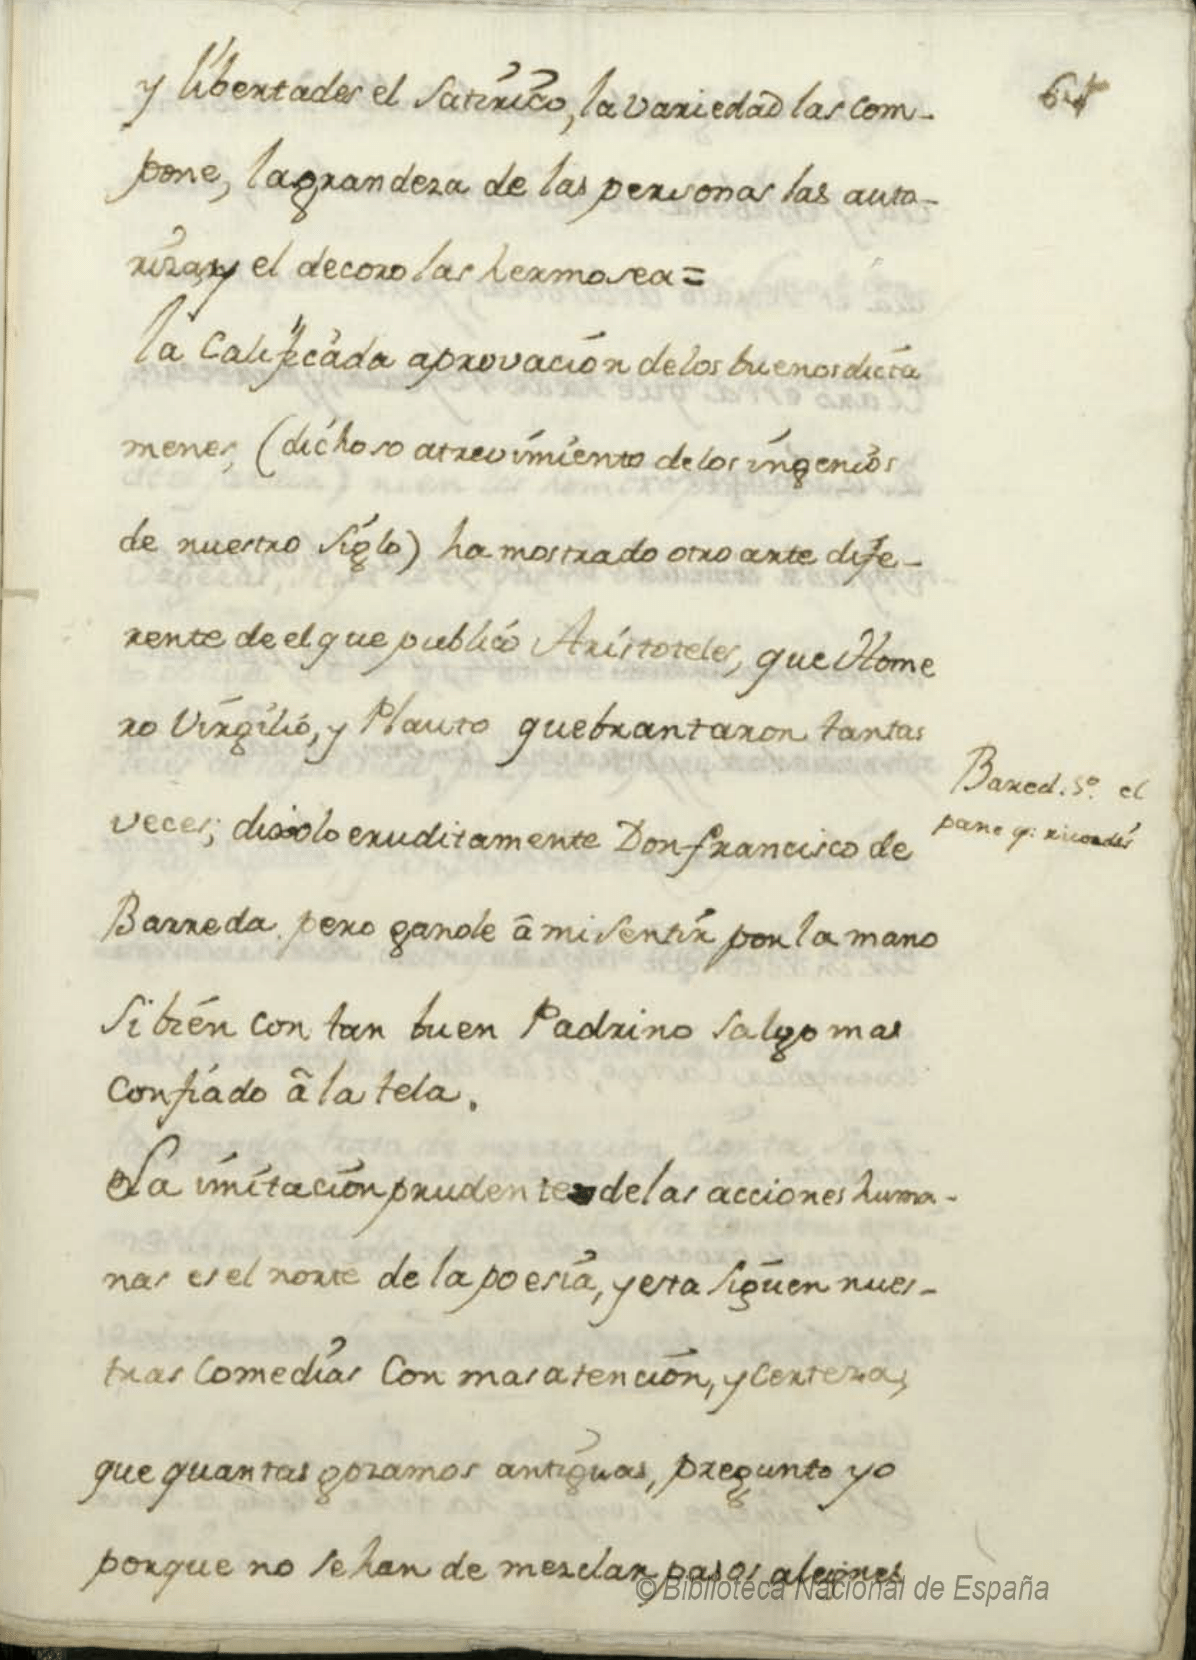 64
y libertades el Satirico, la variedad las com-
pone, la grandeza de las personas las auto-
riza, y el decoro las hermosea=
la Calificada aprovación de los buenos dicta
menes, (dichoso atrevimiento de los ingenios
de nuestro siglo) ha mostrado otro arte dife-
rente de el que publicó Aristoteles, que Home
ro Virgilio, y Plauto quebrantaron tantas
veces; dixolo eruditamente Don francisco de
Barreda. pero ganole â mi sentir por la mano
Si bién con tan buen Padrino salgo mas
Confiado â la tela.
La imitación prudente de las acciones huma-
nas es el norte de la poesia, y esta siguen nues-
tras Comedias Con mas atención, y Certeza,
que quantas gozamos antiguas, pregunto yo
porque no se han de mezclar pasos alegres
Bared. el
© Biblioteca Nacional de España